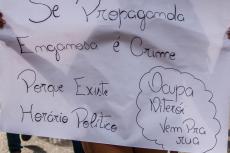 Se Propaganda
Enganosa é Crime
Porque Existe
Horário Politico
Ocupa
Niterói
Vem Pra
rua